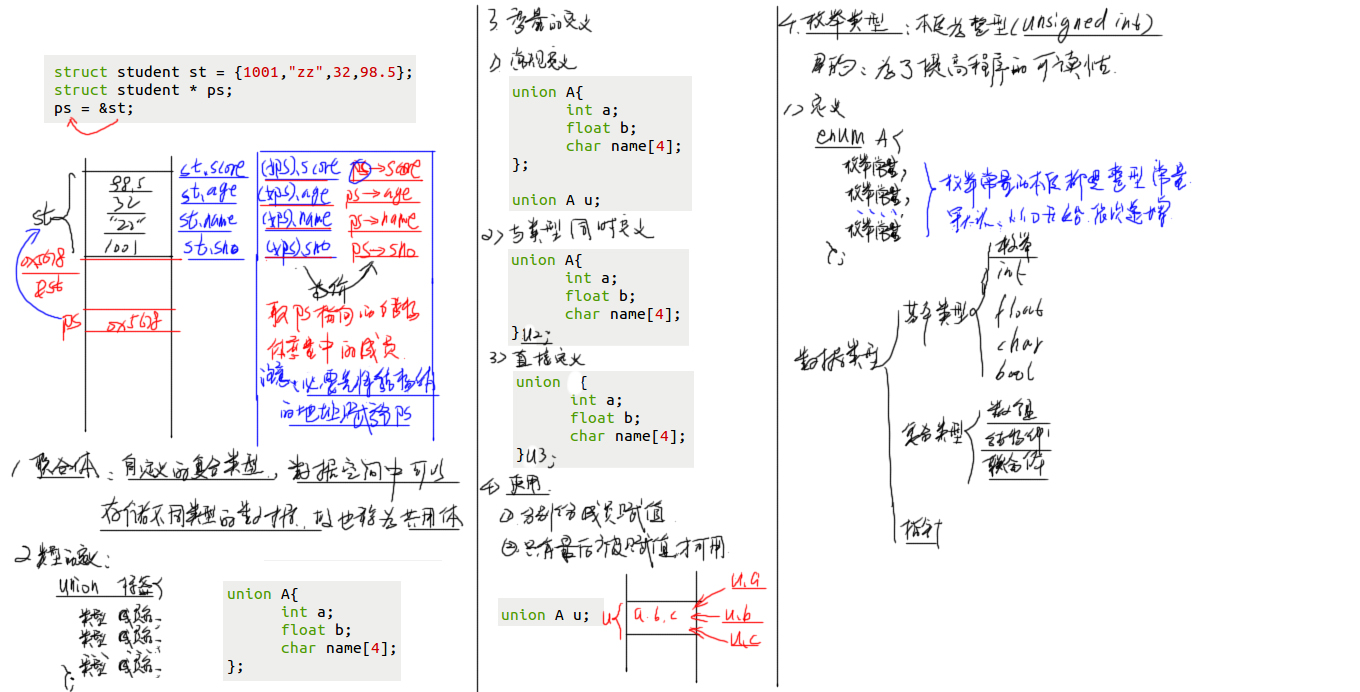 struct student st = {1001,"zz",32,98.5};
struct student * ps;
ps = &st;
98.5
32
"zz"
1001
st
0x5678
&st
ps
0x5678
st.score
st.age
st.name
st.sno
(*ps).score ps→score
(*ps).age ps→age
(*ps).name ps→name
(*ps).sno ps→sno
等价
取ps指向的结构
体变量中的成员.
注意:必需先将结构体
的地址赋给ps
1 联合体: 自定义的复合类型, 数据空间中可以
存储不同类型的数据, 故也称为共用体
2 类型的定义:
union 标签{
类型 成员;
类型 成员;
类型 成员;
};
union A{
int a;
float b;
char name[4];
};
3. 变量的定义
1) 常规定义
union A{
int a;
float b;
char name[4];
};
union A u;
2) 与类型同时定义
union A{
int a;
float b;
char name[4];
}u2;
3) 直接定义
union {
int a;
float b;
char name[4];
}u3;
4) 使用
① 分别给成员赋值
② 只有最后一次赋值才可用.
union A u;
u
a.b.c
u.a
u.b
u.c
4. 枚举类型: 本质为整型(unsigned int)
目的: 为了提高程序的可读性.
1) 定义
enum A{
枚举常量,
枚举常量,
....
枚举常量
};
枚举常量的本质都是整型常量
默认: 从0开始 依次递增
数据类型
基本类型
枚举
int
float
char
bool
复合类型
数组
结构体
联合体
指针